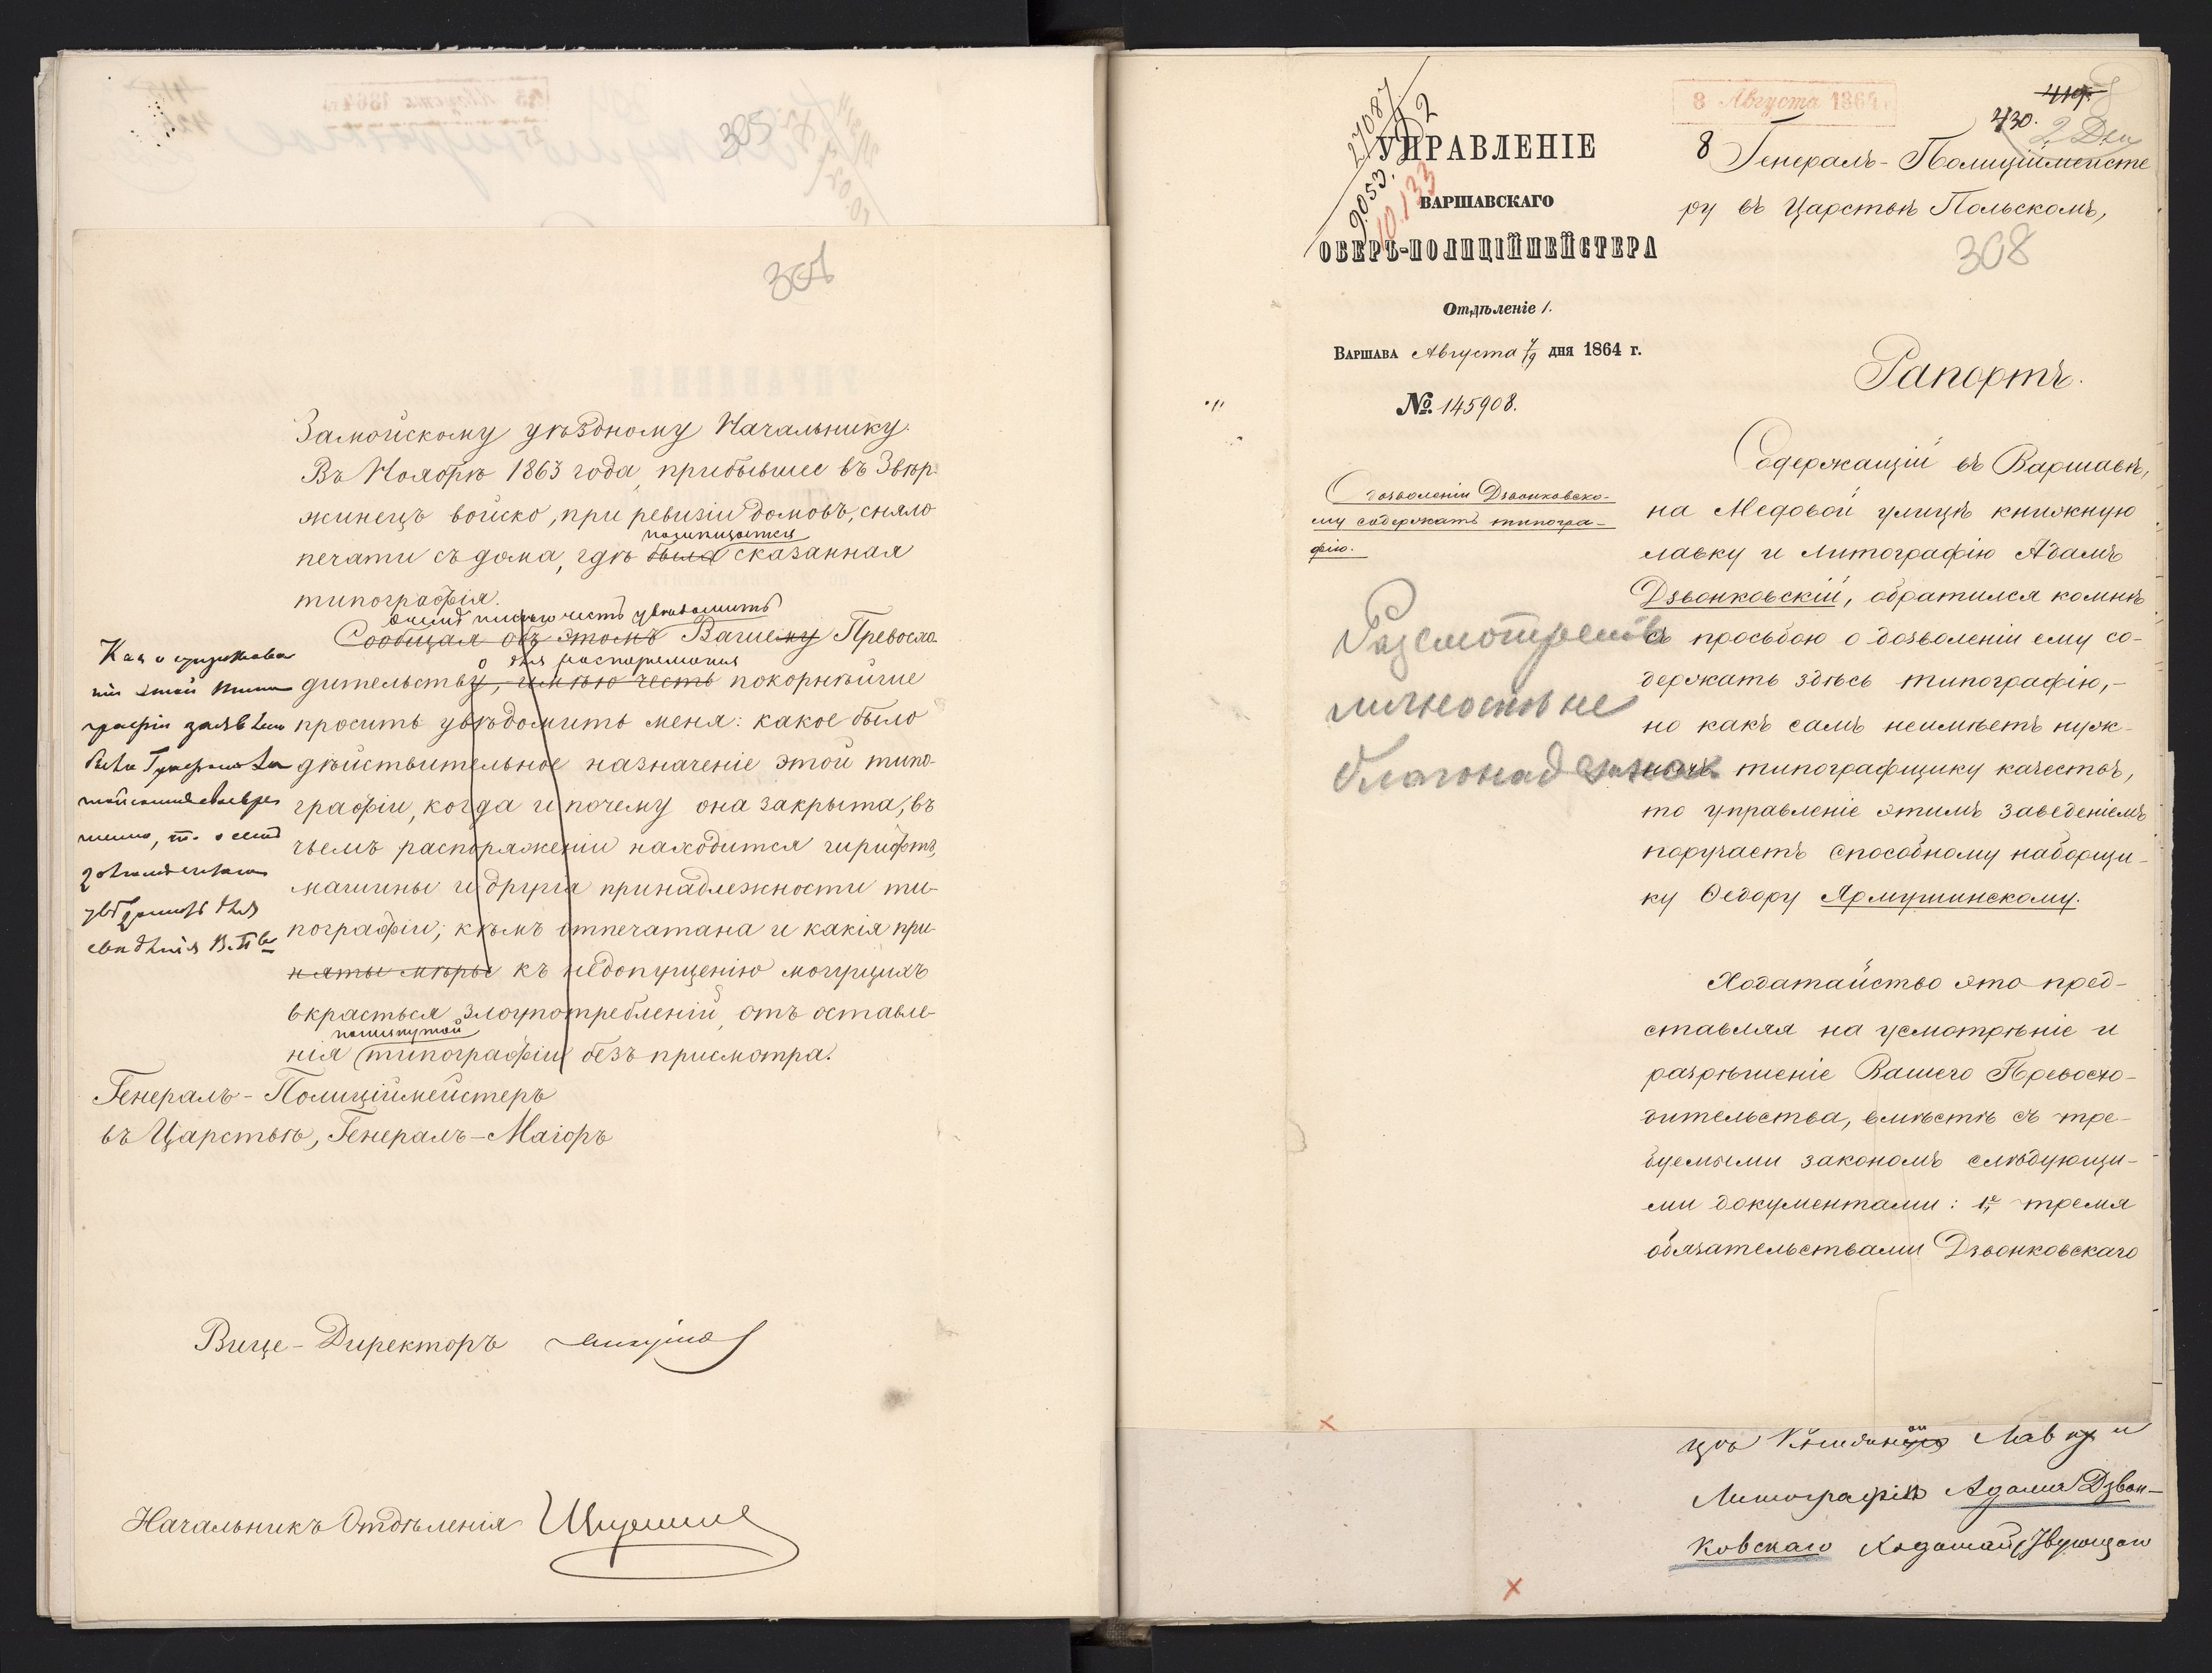 305
306
Замойскому уѣздному Начальнику.
Въ Ноябрѣ 1863 года, прибывшее въ Звѣр-
жинецъ войско, при ревизіи домовъ, сняло
помѣщается
печати съ дома, гдѣ была сказанная
типографія.
имѣю честь увѣдомить
Сообщая объ этомъ Вашему Превосхо
для распоряженія
дительству, имѣю честь покорнѣйше
просить увѣдомить меня: какое было
дѣйствительное назначеніе этой типо-
графіи, когда и почему она закрыта, въ
чьемъ распоряженіи находится шрифтъ,
машины и другія принадлежности ти-
пографіи; кѣмъ опечатана и какія при-
няты мѣры къ недопущенію могущихъ
вкрасться злоупотребленій, отъ оставле-
помянутой
нія типографіи безъ присмотра.
Генералъ-Полиціймейстеръ
въ Царствѣ, Генералъ-Маіоръ
Вице-Директоръ
Начальникъ Отдѣленія
27087
2
9053.
10.133
УПРАВЛЕНІЕ
ВАРШАВСКАГО
ОБЕРЪ-ПОЛИЦІЙМЕЙСТЕРА
Отдѣленіе 1.
ВАРШАВА Августа 7/19 дня 1864 г.
№ 145908.
О дозволеніи Дзвонковско-
му содержать типогра-
фію.
Разсмотреть
личность не
благонадежная
8 Августа 1864
419.
430.
8 Генералъ-Полиціймейсте
ру въ Царствѣ Польскомъ,
308
Рапортъ.
Содержащій въ Варшавѣ,
на Медовой улицѣ книжную
лавку и литографію Адамъ
Дзвонковскій, обратился ко мнѣ
съ просьбою о дозволеніи ему со-
держать здѣсь типографію,-
но какъ самъ неимѣетъ нуж-
ныхъ типографщику качествъ,
то управленіе этимъ заведеніемъ
поручаетъ способному наборщи-
ку Ѳедору Ярмушинскому.
Ходатайство это пред-
ставляя на усмотрѣніе и
разрѣшеніе Вашего Превосхо-
дительства, вмѣстѣ съ тре-
буемыми закономъ слѣдующи-
ми документами: 1е, тремя
обязательствами Дзвонковскаго
Лавки и
Литографіи Адама Дзвон-
ковскаго Ходатайствующаго